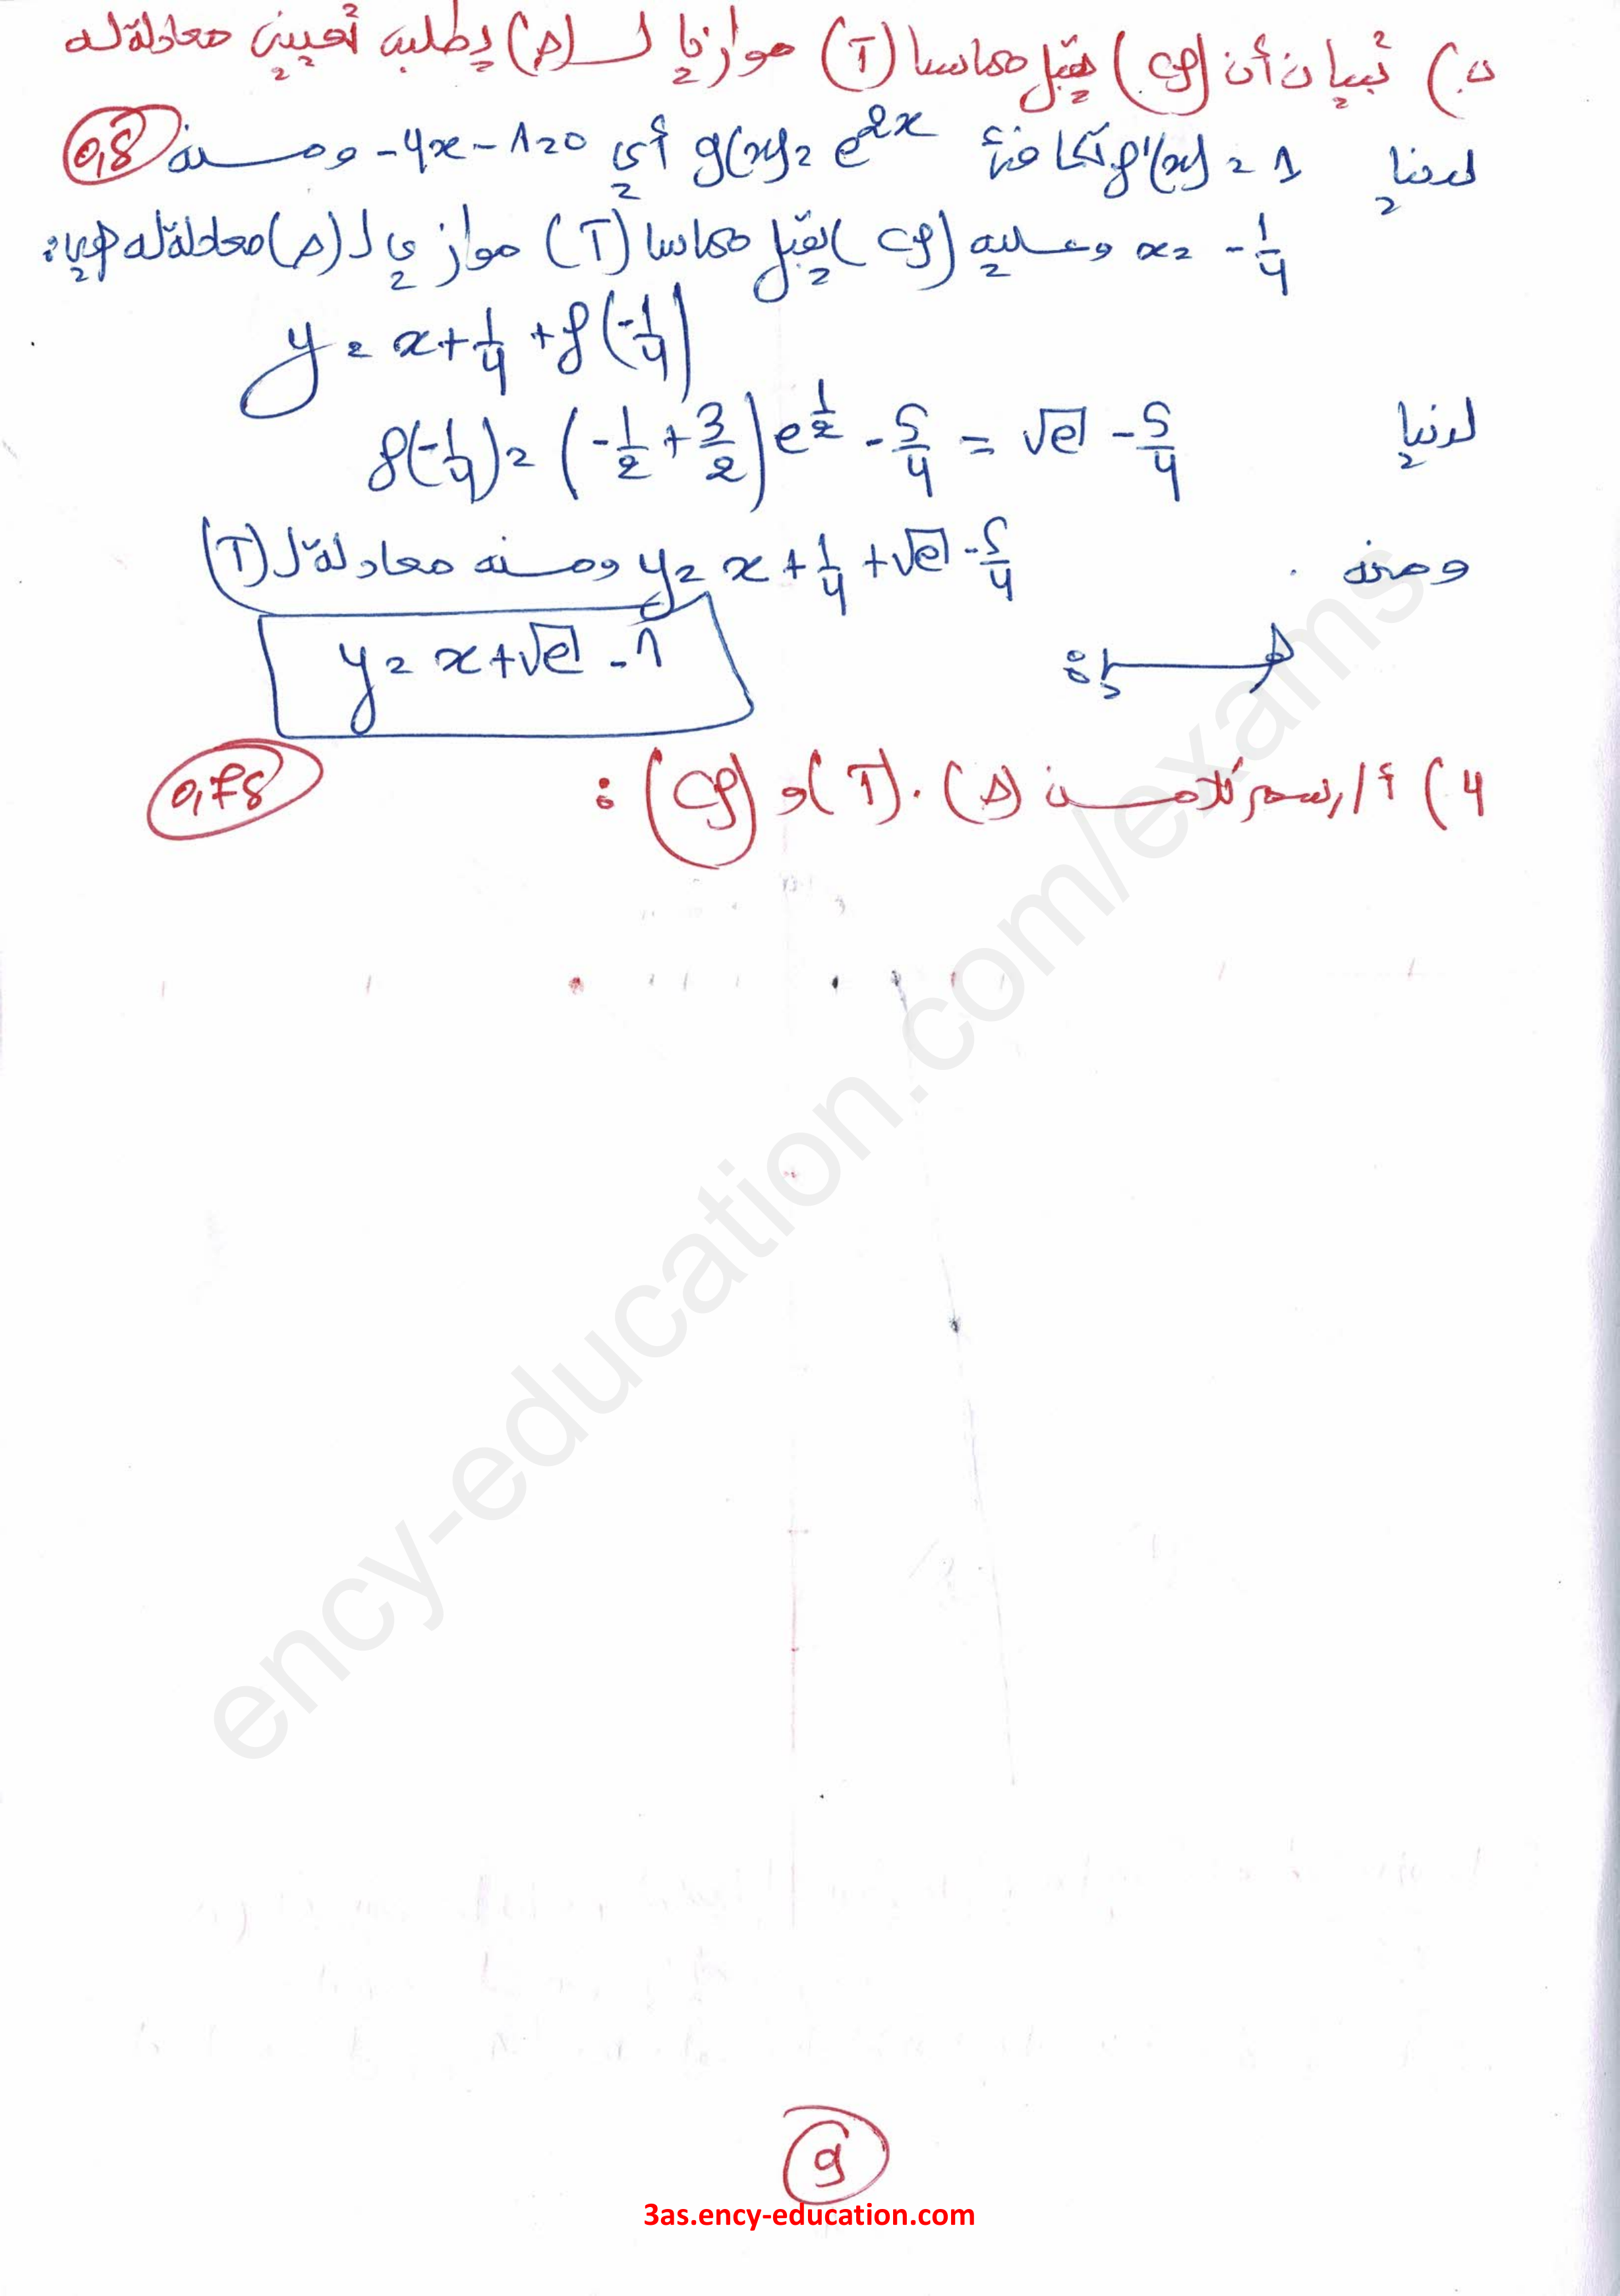 ب) تبيان أن (Cf) يقبل مماسا (T) موازيا لـ (Δ) يطلب تعيين معادلة له
لدينا f'(x) = 1 تكافئ g(x) = e^{2x} أي -4x - 1 = 0 ومنه 0,5
x = -1/4 وعليه (Cf) يقبل مماسا (T) موازي لـ (Δ) معادلة له هي:
y = x + 1/4 + f(-1/4)
لدينا f(-1/4) = (-1/2 + 3/2) e^{1/2} - 5/4 = √e - 5/4
ومنه y = x + 1/4 + √e - 5/4 ومنه معادلة لـ (T)
هي: y = x + √e - 1
4) أ/ رسم كلا من (Δ)، (T) و (Cf): 0,75
ency-education.com/exams
9
3as.ency-education.com